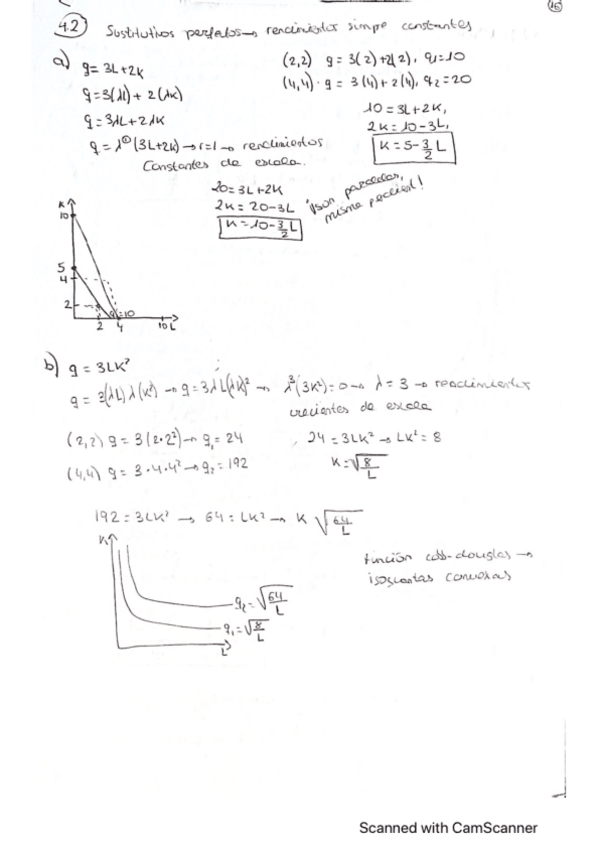 46
4.2) Sustitutivos perfectos → rendimientos simpre constantes
a) q = 3L + 2K
q = 3(λL) + 2(λK)
q = 3λL + 2λK
q = λ^① (3L+2K) → r=1 → rendimientos
constantes de escala.
(2,2) q = 3(2) + 2(2), q₁ = 10
(4,4) · q = 3(4) + 2(4), q₂ = 20
10 = 3L + 2K,
2K = 10 - 3L,
K = 5 - 3/2 L
20 = 3L + 2K
2K = 20 - 3L
K = 10 - 3/2 L
¡¡son paralelas,
misma pendient!
K
10
5
4
2
q=10
2 4 10 L
b) q = 3LK²
q = 3(λL) λ(K²) → q = 3λL(λK)² → λ³(3K²) = 0 → λ = 3 → rendimientos
crecientes de escala
(2,2) q = 3(2·2²) → q₁ = 24
24 = 3LK² → LK² = 8
(4,4) q = 3·4·4² → q₂ = 192
K = √8/L
192 = 3LK² → 64 = LK² → K √64/L
K
función cobb-douglas →
isocuantas convexas
q₂ = √64/L
q₁ = √8/L
L
Scanned with CamScanner